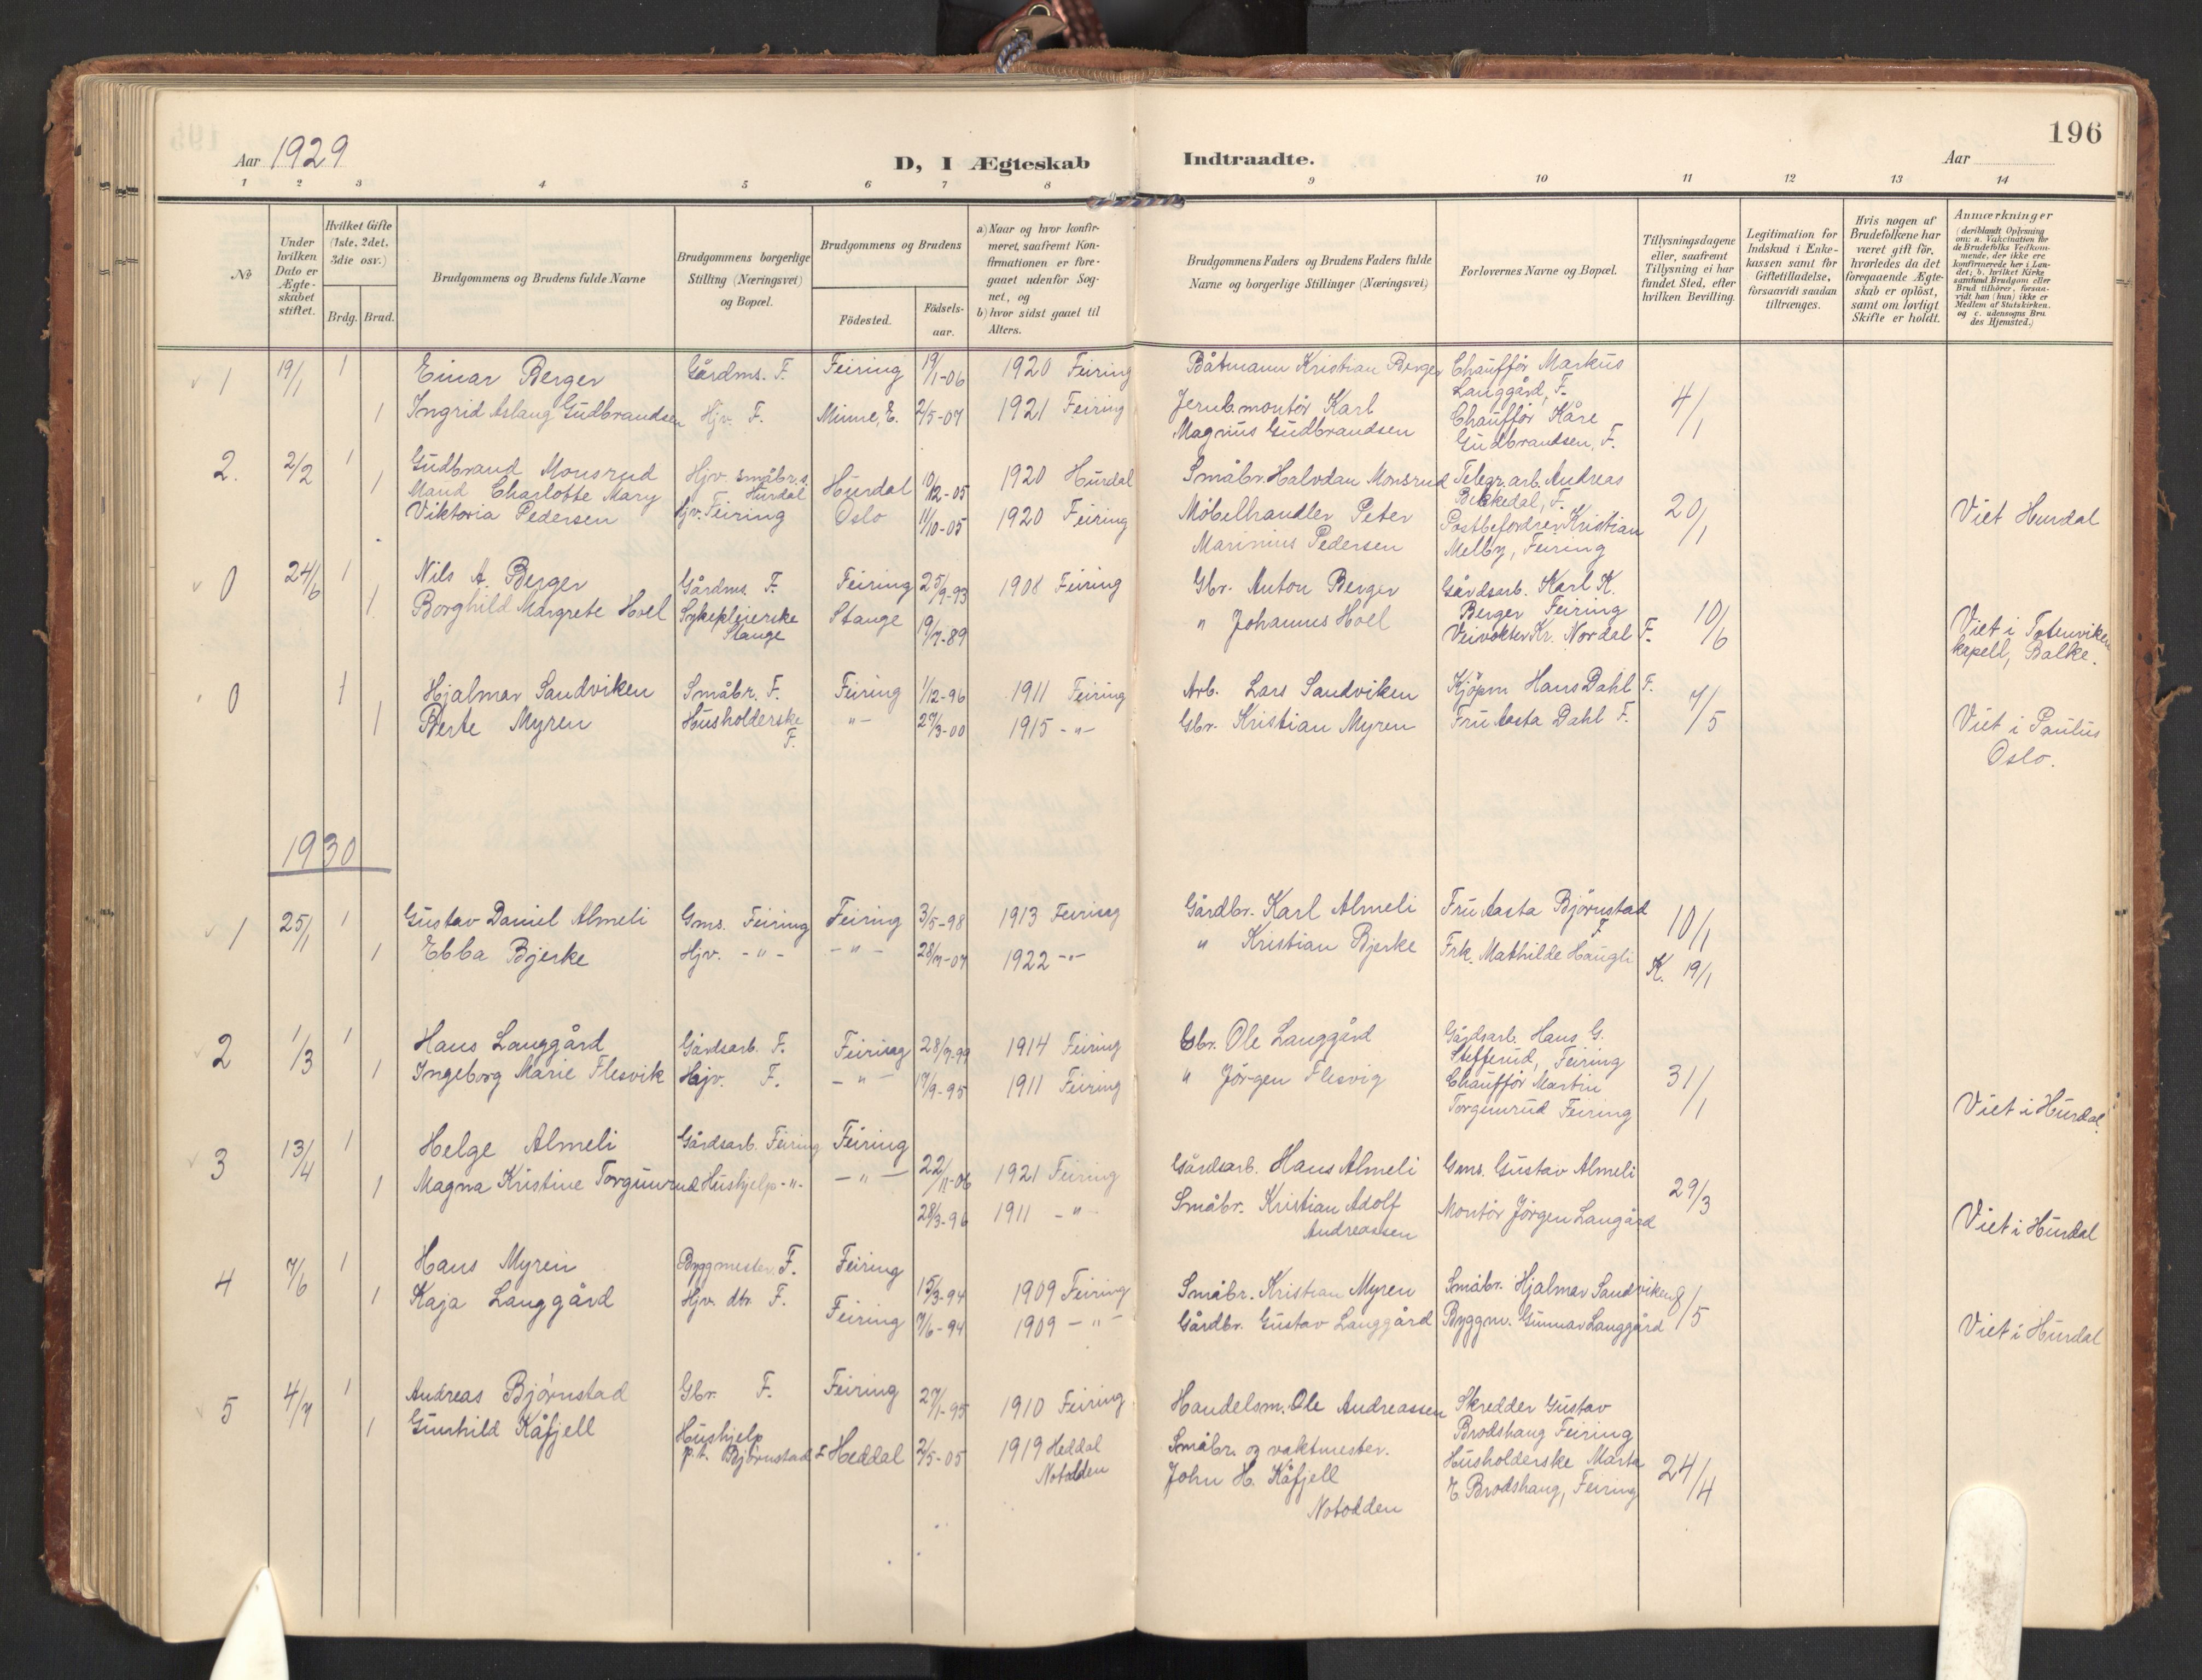 196
Aar 1929
D, I Ægteskab Indtraadte.
Aar
1 2 3 4 5 6 7 8 9 10 11 12 13 14
No
Under hvilken Dato er Ægte-skabet stiftet.
Hvilket Gifte (1ste, 2det, 3die osv.)
Brdg. Brud.
Brudgommens og Brudens fulde Navne
Brudgommens borgerlige Stilling (Næringsvei) og Bopæl.
Brudgommens og Brudens
Födested.
Födsels-aar.
a) Naar og hvor konfir-meret, saafremt Kon-firmationen er fore-gaaet udenfor Sog-net, og
b) hvor sidst gaaet til Alters.
Brudgommens Faders og Brudens Faders fulde Navne og borgerlige Stillinger (Næringsvei)
Forlovernes Navne og Bopæl.
Tillysningsdagene eller, saafremt Tillysning ei har fundet Sted, efter hvilken Bevilling.
Legitimation for Indskud i Enke-kassen samt for Giftetilladelse, forsaavidt saadan tiltrænges.
Hvis nogen af Brudefolkene har været gift för, hvorledes da det foregaaende Ægte-skab er oplöst, samt om lovligt Skifte er holdt.
Anmærkninger (deriblandt Oplysning om: a. Vakcination for de Brudefolks Vedkom-mende, der ikke ere konfirmerede her i Lan-det; b. hvilket Kirke samfund Brudgom eller Brud tilhörer, forsaa-vidt han (hun) ikke er Medlem af Statskirken, og c. udensogns Bru des Hjemsted.)
1 19/1 1 Einar Berger Gårdms. F. Feiring 19/1-06 1920 Feiring Båtmann Kristian Berger Chauffør Markus
Langgård, F.
1 Ingrid Aslaug Gudbrandsen Hjv. F. Minne, E. 2/5-07 1921 Feiring Jernb.montör Karl Chauffør Kåre 4/1
Magnus Gudbrandsen Gudbrandsen, F.
2. 2/2 1 Gudbrand Monsrud Hjv. småbr.s. Hurdal Hurdal 10/12-05 1920 Hurdal Småbr. Halvdan Monsrud Telegr. arb. Andreas
1 Maud Charlotte Mary Bekkedal, F.
Viktoria Pedersen Hjv. Feiring Oslo 11/10-05 1920 Feiring Møbelhandler Peter Postbefordrer Kristian 20/1 Viet Hurdal
Marinius Pedersen Melby, Feiring
0 24/6 1 Nils A. Berger Gårdms. F. Feiring 25/9-93 1908 Feiring Gbr. Anton Berger Gårdsarb. Karl K.
1 Borghild Margrete Hoel Sykepleierske Stange Stange 19/7-89 " Johannes Hoel Berger Feiring 10/6 Viet i Totenviken
Veivokter Kr. Nordal F. kapell, Balke.
0 1 Hjalmar Sandviken Småbr. F. Feiring 1/12-96 1911 Feiring Arb. Lars Sandviken Kjöpm Hans Dahl F. 7/5
1 Berte Myren Husholderske F. -"- 27/3-00 1915 -"- Gbr. Kristian Myren Fru Aasta Dahl F. Viet i Paulus
Oslo.
1930
1 25/1 1 Gustav Daniel Almeli Gms. Feiring Feiring 3/5-98 1913 Feiring Gårdbr. Karl Almeli Fru Aasta Björnstad F. 10/1
1 Ebba Bjerke Hjv. -"- -"- 28/7-07 1922 -"- " Kristian Bjerke Frk. Mathilde Haugli K. 19/1
2 1/3 1 Hans Langgård Gårdsarb. F. Feiring 28/7-99 1914 Feiring Gbr. Ole Langgård Gårdsarb. Hans G.
Stefferud, Feiring
1 Ingeborg Marie Flesvik Hjv. F. -"- 17/9-95 1911 Feiring " Jörgen Flesvig Chauffør Martin 31/1
Torgunrud Feiring Viet i Hurdal.
3 13/4 1 Helge Almeli Gårdsarb. Feiring Feiring 22/11-06 1921 Feiring Gårdsarb. Hans Almeli Gms. Gustav Almeli
1 Magna Kristine Torgunrud Hushjelp -"- -"- 28/3-96 1911 -"- Småbr. Kristian Adolf Montör Jörgen Langård 29/3
Andreassen Viet i Hurdal
4 7/6 1 Hans Myren Byggmester F. Feiring 15/3-94 1909 Feiring Småbr. Kristian Myren Småbr. Hjalmar Sandviken 8/5
1 Kaja Langgård Hjv. dtr F. Feiring 7/6-94 1909 -"- Gårdbr. Gustav Langgård Byggm. Gunnar Langgård Viet i Hurdal
5 4/7 1 Andreas Björnstad Gbr. F. Feiring 27/1-95 1910 Feiring Handelsm. Ole Andreassen Skredder Gustav
Brodshaug Feiring
1 Gunhild Kåfjell Hushjelp
p.t. Björnstad F Heddal 2/5-05 1919 Heddal Småbr. og vaktmester. Husholderske Marta 24/4
Notodden John H. Kåfjell E Brodshaug, Feiring
Notodden